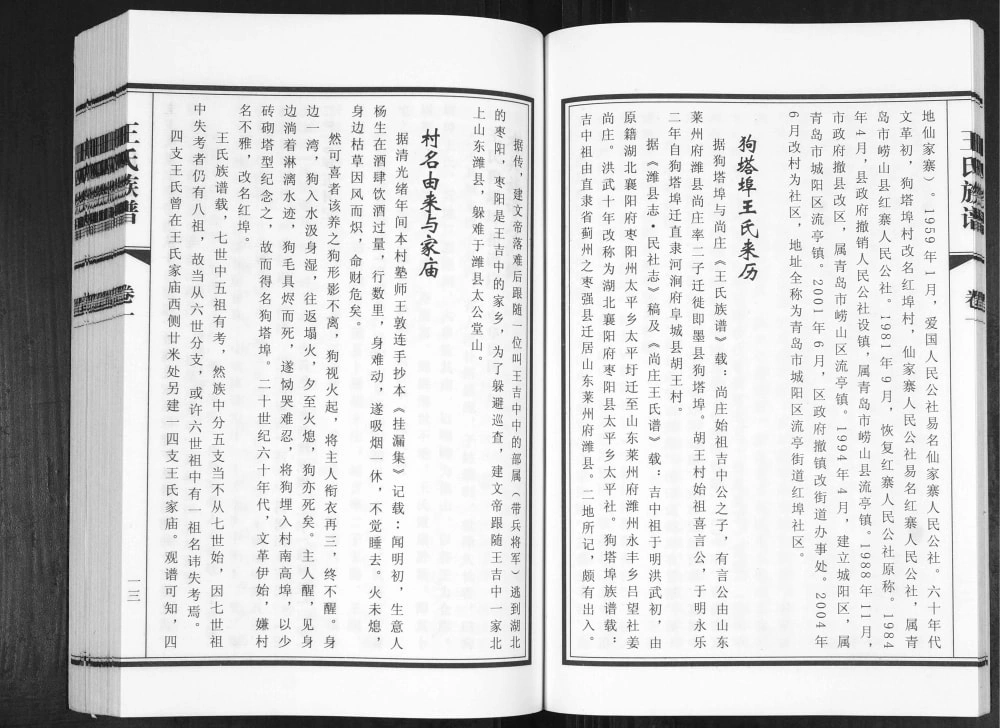 王氏族谱
卷一
地仙家寨）。1959年1月，爱国人民公社易名仙家寨人民公社。六十年代
文革初，狗塔埠村改名红埠村，仙家寨人民公社易名红寨人民公社，属青
岛市崂山县红寨人民公社。1981年9月，恢复红寨人民公社原称。1984
年4月，县政府撤销人民公社设镇，属青岛市崂山县流亭镇。1988年11月，
市政府撤县改区，属青岛市崂山区流亭镇。1994年4月，建立城阳区，属
青岛市城阳区流亭镇。2001年6月，区政府撤镇改街道办事处。2004年
6月改村为社区，地址全称为青岛市城阳区流亭街道红埠社区。
狗塔埠王氏来历
据狗塔埠与尚庄《王氏族谱》载：尚庄始祖吉中公之子，有言公由山东
莱州府潍县尚庄率二子迁徙即墨县狗塔埠。胡王村始祖喜言公，于明永乐
二年自狗塔埠迁直隶河涧府阜城县胡王村。
据《潍县志·民社志》稿及《尚庄王氏谱》载：吉中祖于明洪武初，由
原籍湖北襄阳府枣阳州太平乡太平圩迁至山东莱州府潍州永丰乡吕望社姜
尚庄。洪武十年改称为湖北襄阳府枣阳县太平乡太平社。狗塔埠族谱载：
吉中祖由直隶省蓟州之枣强县迁居山东莱州府潍县。二地所记，颇有出入。
据传，建文帝落难后跟随一位叫王吉中中的部属（带兵将军）逃到湖北
的枣阳，枣阳是王吉中的家乡，为了躲避巡查，建文帝跟随王吉中一家北
上山东潍县，躲难于潍县太公堂山。
村名由来与家庙
据清光绪年间本村塾师王敦连手抄本《挂漏集》记载：闻明初，生意人
杨生在酒肆饮酒过量，行数里，身难动，遂吸烟一休，不觉睡去。火未熄，
身边枯草因风而炽，命财危矣。
然可喜者该养之狗形影不离，狗视火起，将主人衔衣再三，终不醒。身
边一湾，狗入水汲身湿，往返塌火，夕至火熄，狗亦死矣。主人醒，见身
边淌着淋漓水迹，狗毛具烬而死，遂恸哭难忍，将狗埋入村南高埠，以少
砖砌塔型纪念之，故而得名狗塔埠。二十世纪六十年代，文革伊始，嫌村
名不雅，改名红埠。
王氏族谱载，七世中五祖有考，然族中分五支当不从七世始，因七世祖
中失考者仍有八祖，故当从六世分支，或许六世祖中有一祖名讳失考焉。
四支王氏曾在王氏家庙西侧廿米处另建一四支王氏家庙。观谱可知，四
王氏族谱
卷一
一三